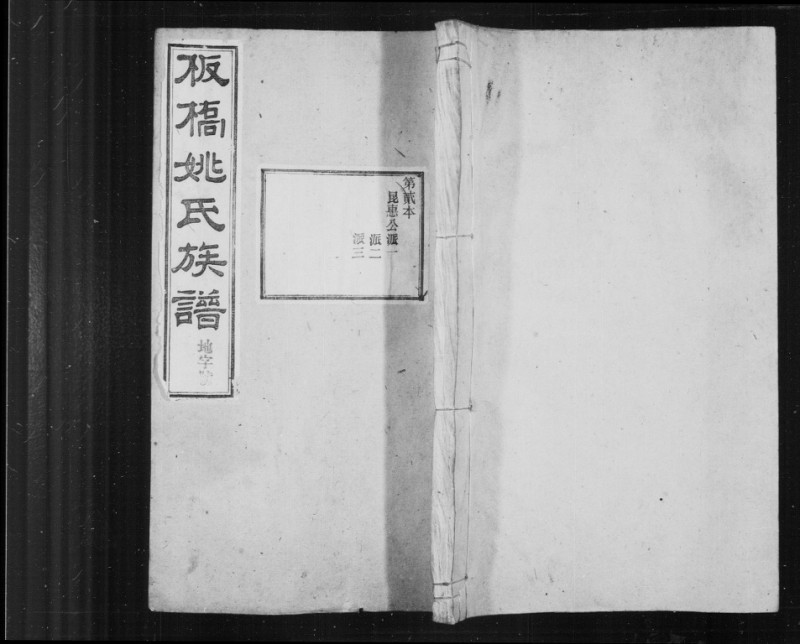 板橋姚氏族譜
地字號
第貳本
昆惠公派一
派二
派三